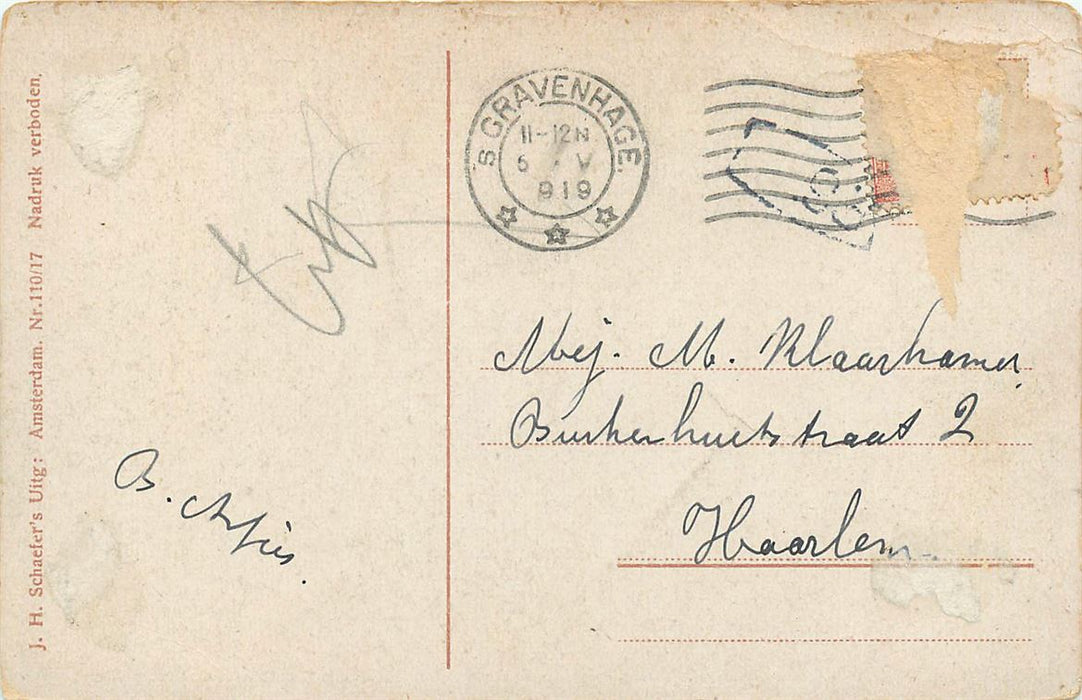 J. H. Schaefer's Uitg: Amsterdam. Nr. 110/17 Nadruk verboden.
'S GRAVENHAGE.
11-12 N
6 V
1919
Mej. M. Klaarhamer
Busken huetstraat 2
Haarlem.
B.